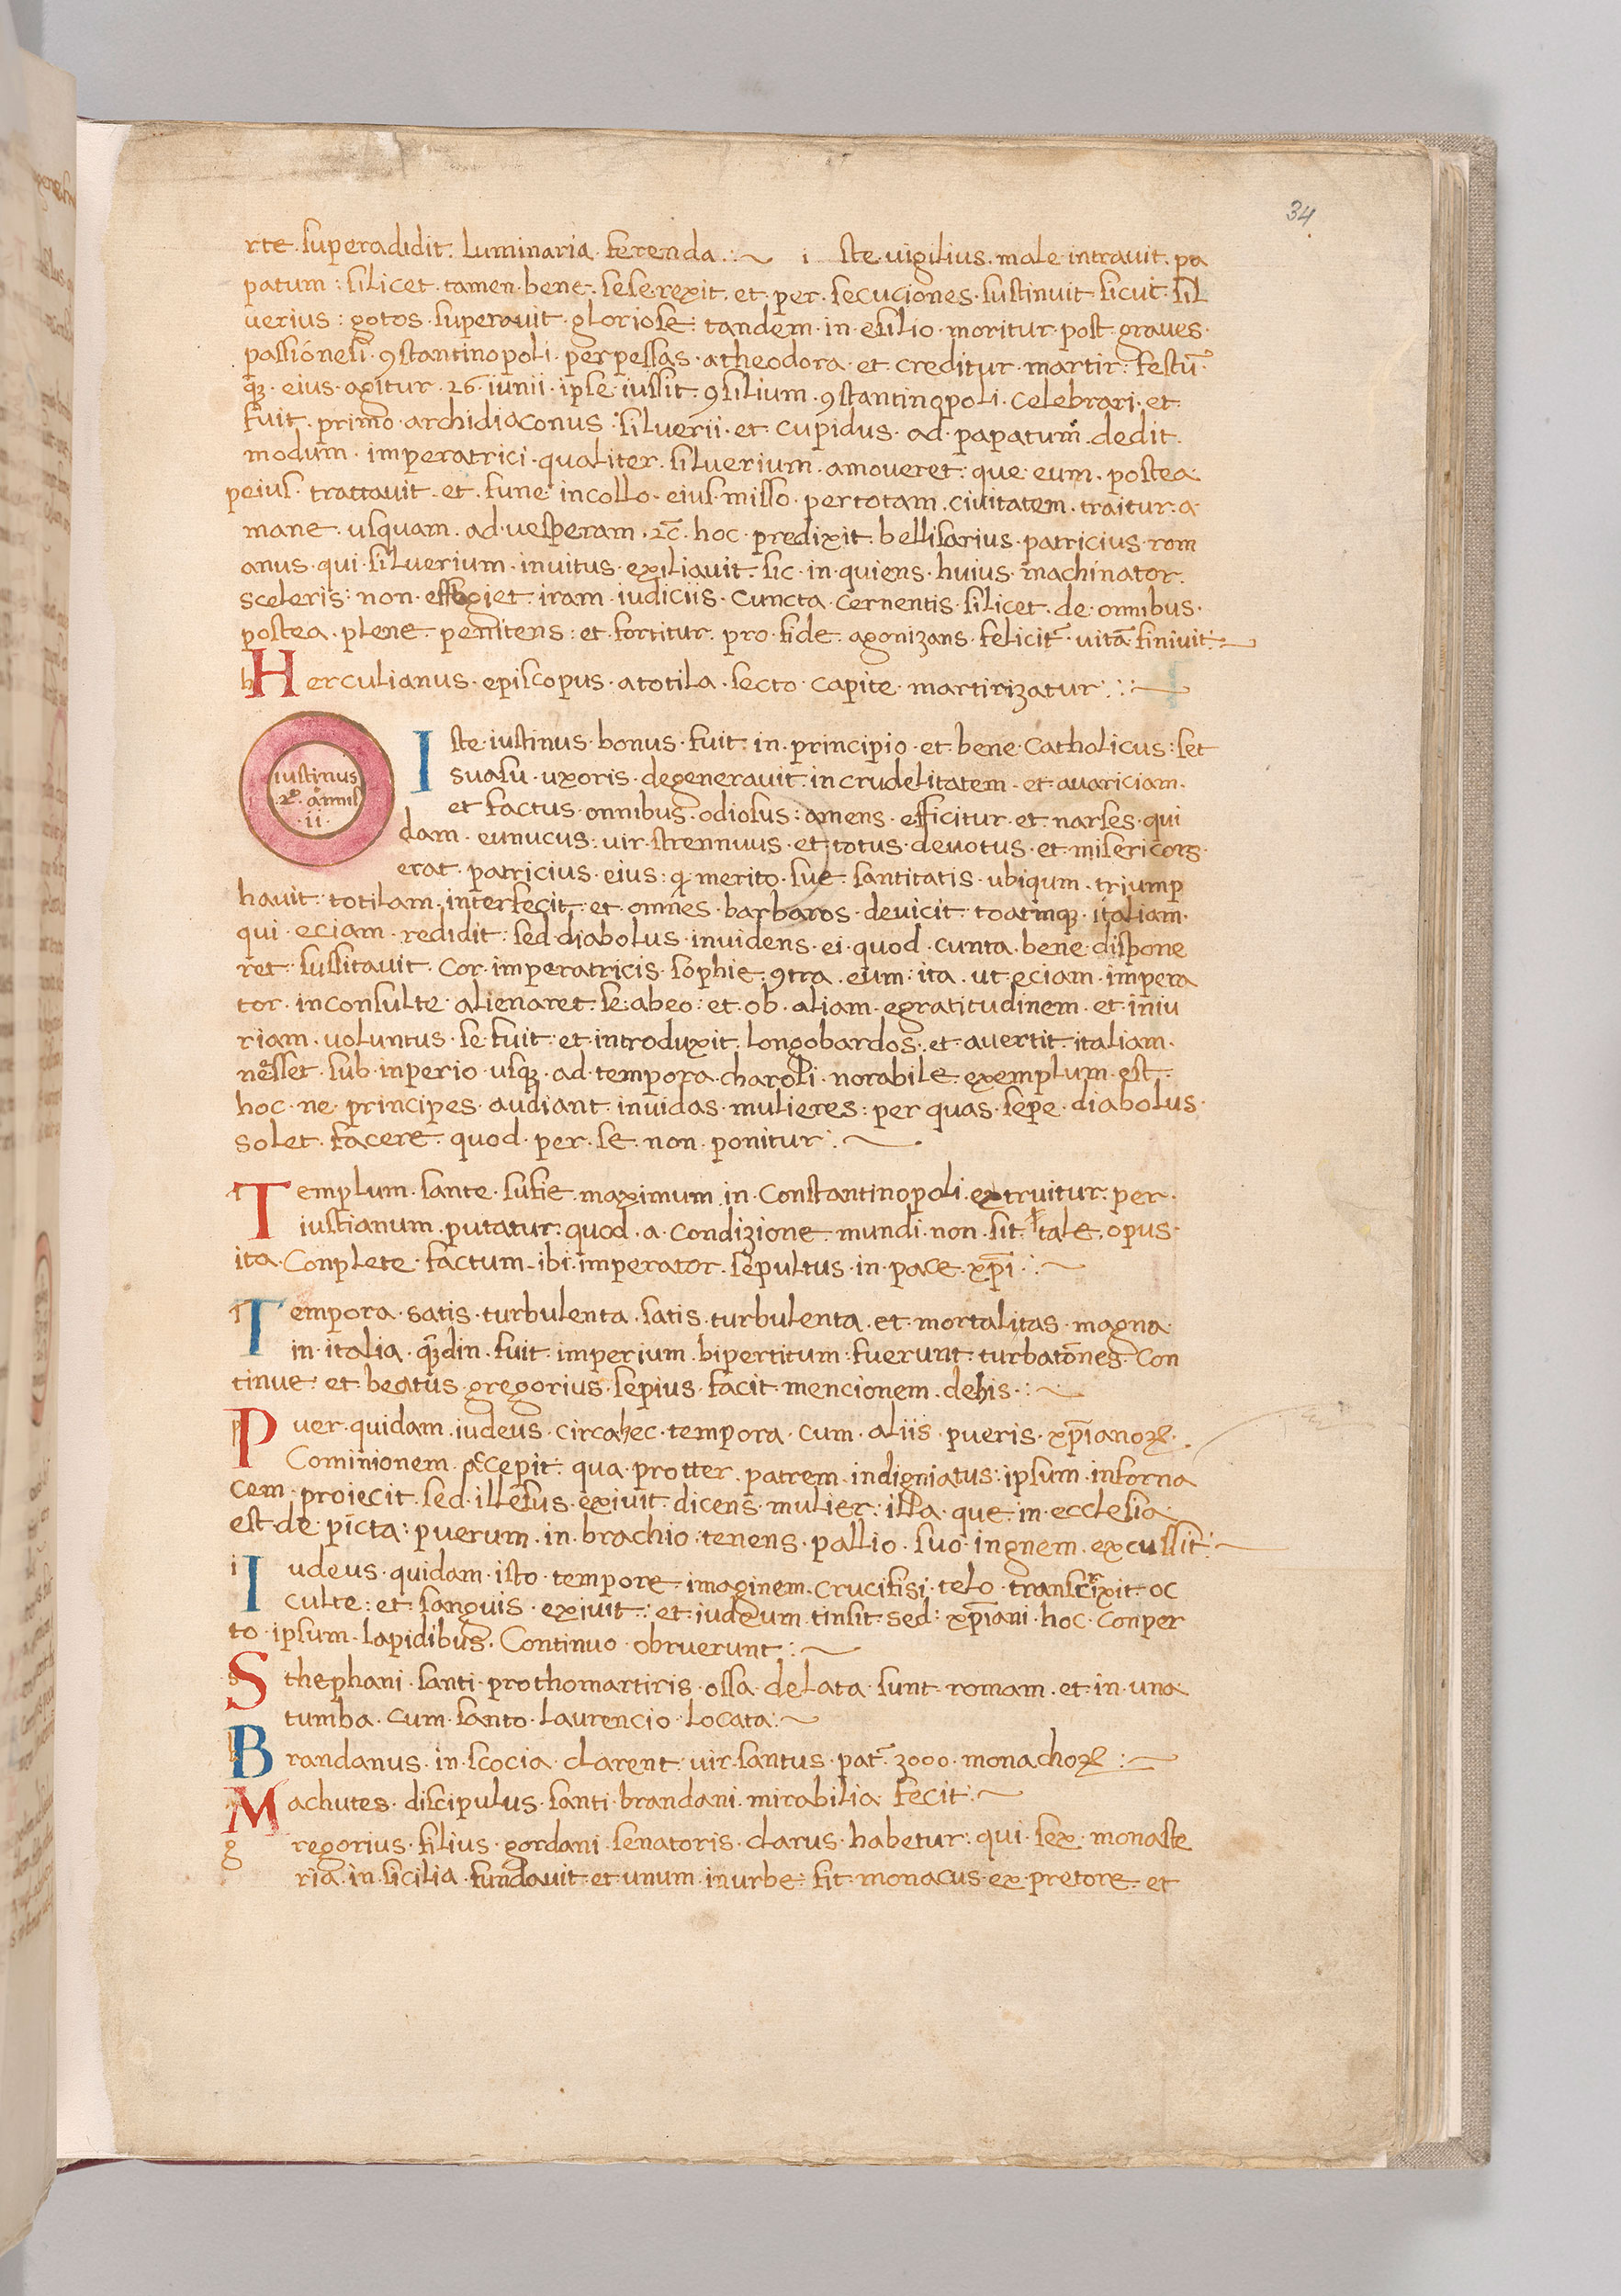 34
rte · superadidit : luminaria · ferenda : ~ i ste · vigilius · male · intravit · pa
patum : silicet · tamen · bene · sese rexit · et · per · secuciones · sustinuit · sicut · sil
uerius : gotos · superauit · gloriose : tandem · in · esilio · moritur · post · graues ·
passionesi · 9stantinopoli · perpessas · atheodora · et · creditur · martir : festū ·
qꝫ · eius · agitur · 26 · iunii · ipse · iussit · 9silium · 9stantinopoli · celebrari · et ·
fuit · primo · archidiaconus · siluerii · et · cupidus · ad · papatum · dedit ·
modum · imperatrici · qualiter · siluerium · amoueret : que · eum · postea
peius · trattauit · et · fune · incollo · eius · misso · per totam · ciuitatem · traitur · a
mane · usquam · ad · uesperam · 2c̄ · hoc · predixit · bellisarius · patricius · rom
anus · qui · siluerium · inuitus · exiliauit · sic · in · quiens · huius · machinator ·
sceleris : non · effugiet · iram · iudiciis · cuncta · cernentis · silicet · de · omnibus ·
postea · plene · penitens : et · fortitur · pro · fide · agonizans · felicit̄ · uitā · finiuit : ~
h H erculianus · episcopus · a totila · secto · capite · martirizatur : : ~
iustinus
2º · annis
· ii ·
I ste · iustinus · bonus · fuit · in · principio · et · bene · catholicus : set
suasu · uxoris · degenerauit · in crudelitatem · et · auariciam ·
et · factus · omnibus · odiosus : amens · efficitur · et · narses · qui
dam · eunucus : uir · strennuus · et · totus · deuotus · et · misericors ·
erat · patricius · eius : q · merito · sue · santitatis · ubiqum · triump
hauit · totilam · interfecit · et · omnes · barbaros · deuicit · toatmqꝫ · italiam ·
qui · eciam · redidit : sed · diabolus · inuidens · ei · quod · cunta · bene · dispone
ret · sussitauit · cor · imperatricis · sophie · 9tra · eum : ita · ut · eciam · impera
tor · inconsulte · alienaret · se · abeo : et · ob · aliam · egratitudinem · et · iniu
riam · uoluntus · se · fuit · et · introduxit · longobardos · et · auertit · italiam ·
nesset · sub · inperio · usqꝫ · ad · tempora · charoli · norabile · exemplum · est ·
hoc · ne · principes · audiant · inuidas · mulieres : per quas · sepe · diabolus ·
solet · facere · quod · per · se · non · ponitur : ~
T emplum · sante · sufie · maximum · in · Constantinopoli · extruitur · per ·
iustianum · putatur : quod · a · condizione · mundi · non · sit · tale · opus ·
ita · Conplete · factum · ibi · imperator · sepultus · in · pace · xp̄i : ~
T empora · satis · turbulenta · satis · turbulenta · et · mortalitas · magna ·
in · italia · qꝫdin · fuit · imperium · bipertitum · fuerunt · turbatōnes · Con
tinue · et · beatus · gregorius · sepius · facit · mencionem · dehis : ~
P uer · quidam · iudeus · circahec · tempora · cum · aliis · pueris · xp̄ianoꝝ ·
Cominionem · accepit : qua · protter · patrem · indigniatus : ipsum · inforna
cem · proiecit · sed · illesus · exiuit · dicens · mulier : illa · que · in · ecclesia ·
est · de · picta : puerum · in · brachio · tenens · pallio · suo · ingnem · excussit : ~
i I udeus · quidam · isto · tempore · imaginem · crucifisi · telo · transfixit · oc
culte : et · sanguis · exiuit : et · iudeum · tinsit · sed : xp̄iani · hoc · conper
to · ipsum · lapidibus · Continuo · obruerunt : ~
S thephani · santi · prothomartiris · ossa · delata · sunt · romam · et · in · una ·
tumba · cum · santo · laurencio · locata : ~
B randanus · in · scocia · clarent · uir · santus · pat̄ · 3000 · monachoꝝ : ~
M achutes · discipulus · santi · brandani · mirabilia · fecit : ~
g regorius · filius · gordani · senatoris · clarus · habetur : qui · sex · monaste
ria · in · sicilia · fundauit · et · unum · inurbe · fit · monacus · ex · pretore · et